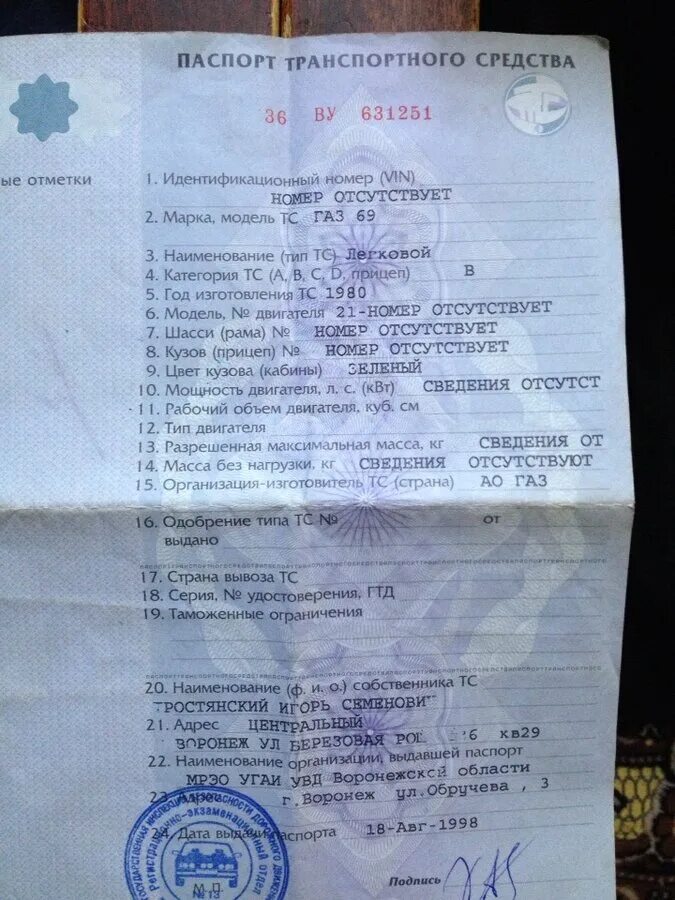 ПАСПОРТ ТРАНСПОРТНОГО СРЕДСТВА
36 ВУ 631251
ые отметки
1. Идентификационный номер (VIN)
НОМЕР ОТСУТСТВУЕТ
2. Марка, модель ТС ГАЗ 69
3. Наименование (тип ТС) Легковой
4. Категория ТС (А, В, С, D, прицеп) В
5. Год изготовления ТС 1980
6. Модель, № двигателя 21-НОМЕР ОТСУТСТВУЕТ
7. Шасси (рама) № НОМЕР ОТСУТСТВУЕТ
8. Кузов (прицеп) № НОМЕР ОТСУТСТВУЕТ
9. Цвет кузова (кабины) ЗЕЛЕНЫЙ
10. Мощность двигателя, л. с. (кВт) СВЕДЕНИЯ ОТСУТСТ
11. Рабочий объем двигателя, куб. см
12. Тип двигателя
13. Разрешенная максимальная масса, кг СВЕДЕНИЯ ОТ
14. Масса без нагрузки, кг СВЕДЕНИЯ ОТСУТСТВУЮТ
15. Организация-изготовитель ТС (страна) АО ГАЗ
16. Одобрение типа ТС № от
выдано
17. Страна вывоза ТС
18. Серия, № удостоверения, ГТД
19. Таможенные ограничения
20. Наименование (ф. и. о.) собственника ТС
ТРОСТЯНСКИЙ ИГОРЬ СЕМЕНОВИ
21. Адрес ЦЕНТРАЛЬНЫЙ
ВОРОНЕЖ УЛ БЕРЕЗОВАЯ РОЩ кв29
22. Наименование организации, выдавшей паспорт
МРЭО УГАИ УВД Воронежской области
23. Адрес г.Воронеж ул.Обручева , 3
24. Дата выдачи паспорта 18-Авг-1998
Регистрационно-экзаменационный отдел
М.П.
№13
Подпись